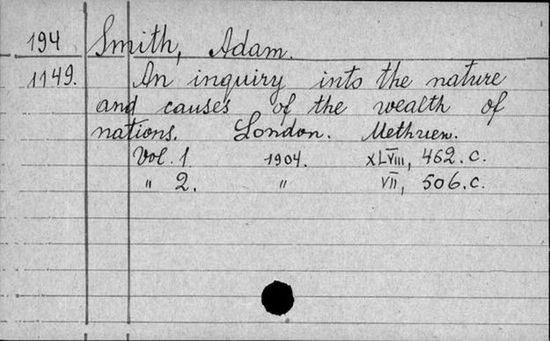 194 Smith, Adam.
1149. An inquiry into the nature
and causes of the wealth of
nations. London. Methuen.
Vol. 1 1904. XLVIII, 462. c.
" 2. " VII, 506. c.